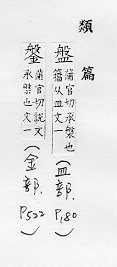 類篇
盤 蒲官切承槃也
籀从皿文一
(皿部.
P,180)
鎜 蒲官切說文
承槃也文一
(金部.
P,522)